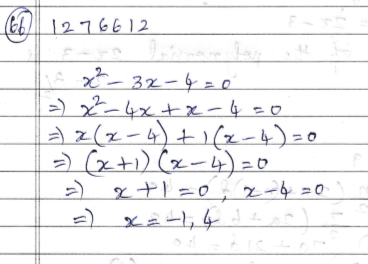 66 1276612
x² - 3x - 4 = 0
⇒ x² - 4x + x - 4 = 0
⇒ x(x - 4) + 1(x - 4) = 0
⇒ (x + 1) (x - 4) = 0
⇒ x + 1 = 0, x - 4 = 0
⇒ x = -1, 4